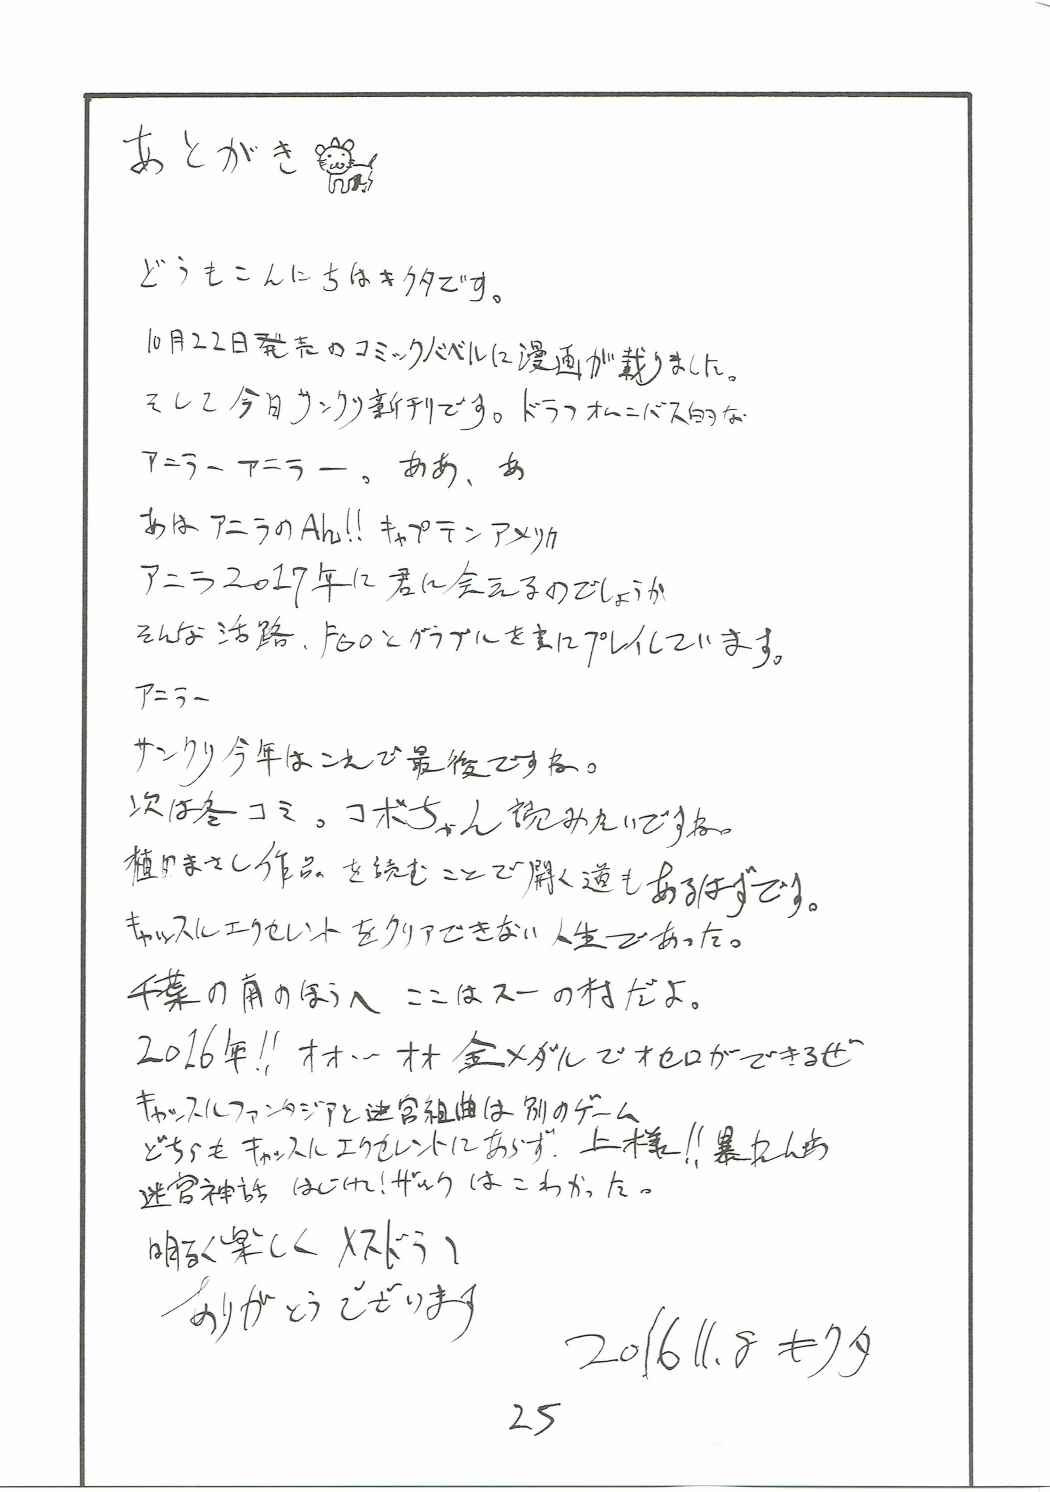 あとがき
どうもこんにちはキクタです。
10月22日発売のコミックバベルに漫画が載りました。
そして今日サンクリ新刊です。ドラフオムニバス的な
アニラーアニラー。ああ、あ
あはアニラのAh!!キャプテンアメリカ
アニラ2017年に君に会えるのでしょうか
そんな活路、FGOとグラブルを主にプレイしています。
アニラー
サンクリ今年はこれで最後ですね。
次は冬コミ。コボちゃん読みたいですね。
植田まさし作品を読むことで開く道もあるはずです。
キャッスルエクセレントをクリアできない人生であった。
千葉の南のほうへ ここはスーの村だよ。
2016年!!オオ…オオ金メダルでオセロができるぜ
キャッスルファンタジアと迷宮組曲は別のゲーム
どちらもキャッスルエクセレントにあらず。上様!!暴れんぼ
迷宮神話 はじけ!ザックはこわかった。
明るく楽しくメスドラへ
ありがとうございます
2016 11.8 キクタ
25